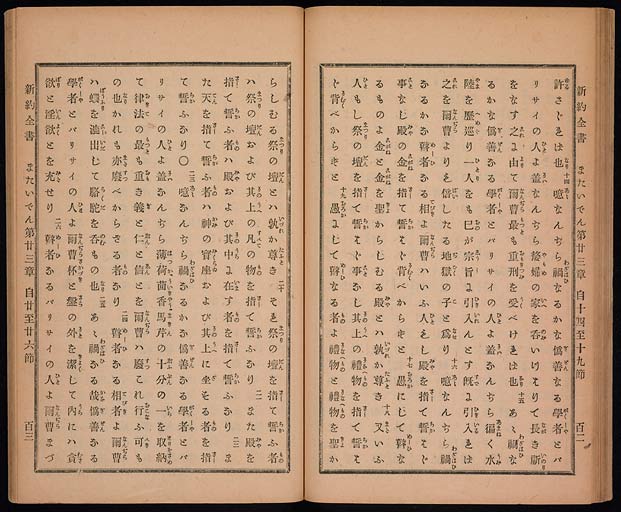 新約全書 またいでん第廿三章 自十四至十九節 百二
許さゞる也 十四 噫なんぢら禍なるかな僞善なる學者とパ
リサイの人よ蓋なんぢら嫠婦の家を呑いつはりて長き祈
をなす之に由て爾曹最も重刑を受べければ也 十五 あゝ禍な
るかな僞善なる學者とパリサイの人よ蓋なんぢら徧く水
陸を歷巡り一人をも己が宗旨に引入んとす既に引入れば
之を爾曹よりも倍したる地獄の子と爲り 十六 噫なんぢら禍
なるかな瞽者なる相よ爾曹はいふ人もし殿を指て誓はゞ
事なし殿の金を指て誓はゞ背べからずと 十七 愚にして瞽な
るものよ金と金を聖からしむる殿とハ孰か尊き 十八 又いふ
人もし祭の壇を指て誓はゞ事なし其上の禮物を指て誓は
ゞ背べからずと 十九 愚にして瞽なる者よ禮物と禮物を聖か
らしむる祭の壇とハ孰か尊き 二十 それ祭の壇を指て誓ふ者
ハ祭の壇および其上の凡の物を指て誓ふなり 廿一 また殿を
指て誓ふ者ハ殿および其中に在す者を指て誓ふなり 廿二 ま
た天を指て誓ふ者ハ神の寶座および其上に坐する者を指
て誓ふなり〇 廿三 噫なんぢら禍なるかな僞善なる學者とパ
リサイの人よ蓋なんぢら薄荷茴香馬芹の十分の一を取納
て律法の最も重き義と仁と信とを爾曹ハ廢これ行ふ可も
の也かれも亦廢べからざる者なり 廿四 瞽者なる相者よ爾曹
ハ蠓を漉出して駱駝を呑もの也 廿五 あゝ禍なる哉僞善なる
學者とパリサイの人よ爾曹杯と盤の外を潔して内にハ貪
欲と淫欲とを充せり 廿六 瞽者なるパリサイの人よ爾曹まづ
新約全書 またいでん第廿三章 自廿至廿六節 百三